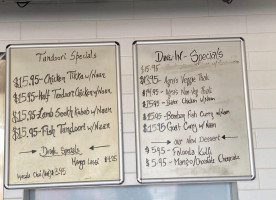 Tandoori Specials
$15.95-Chicken Tikka w/Naan
$15.95-Half Tandoori Chicken w/Naan
$15.95-Lamb Seekh Kabab w/Naan
$15.95-Fish Tandoori w/Naan
Drink Specials
Mango Lassi $4.95
$3.95
Dine-IN - Specials
$15.95
$13.95- Veggie Thali
$14.95- Non Veg Thali
$15.95- Chicken w/Naan
$15.95- Bombay Fish Curry w/Naan
$15.95- Goat Curry w/Naan
our New Dessert
$5.95- Falooda Kulfi
$5.95- Mango/Chocolate Cheesecake